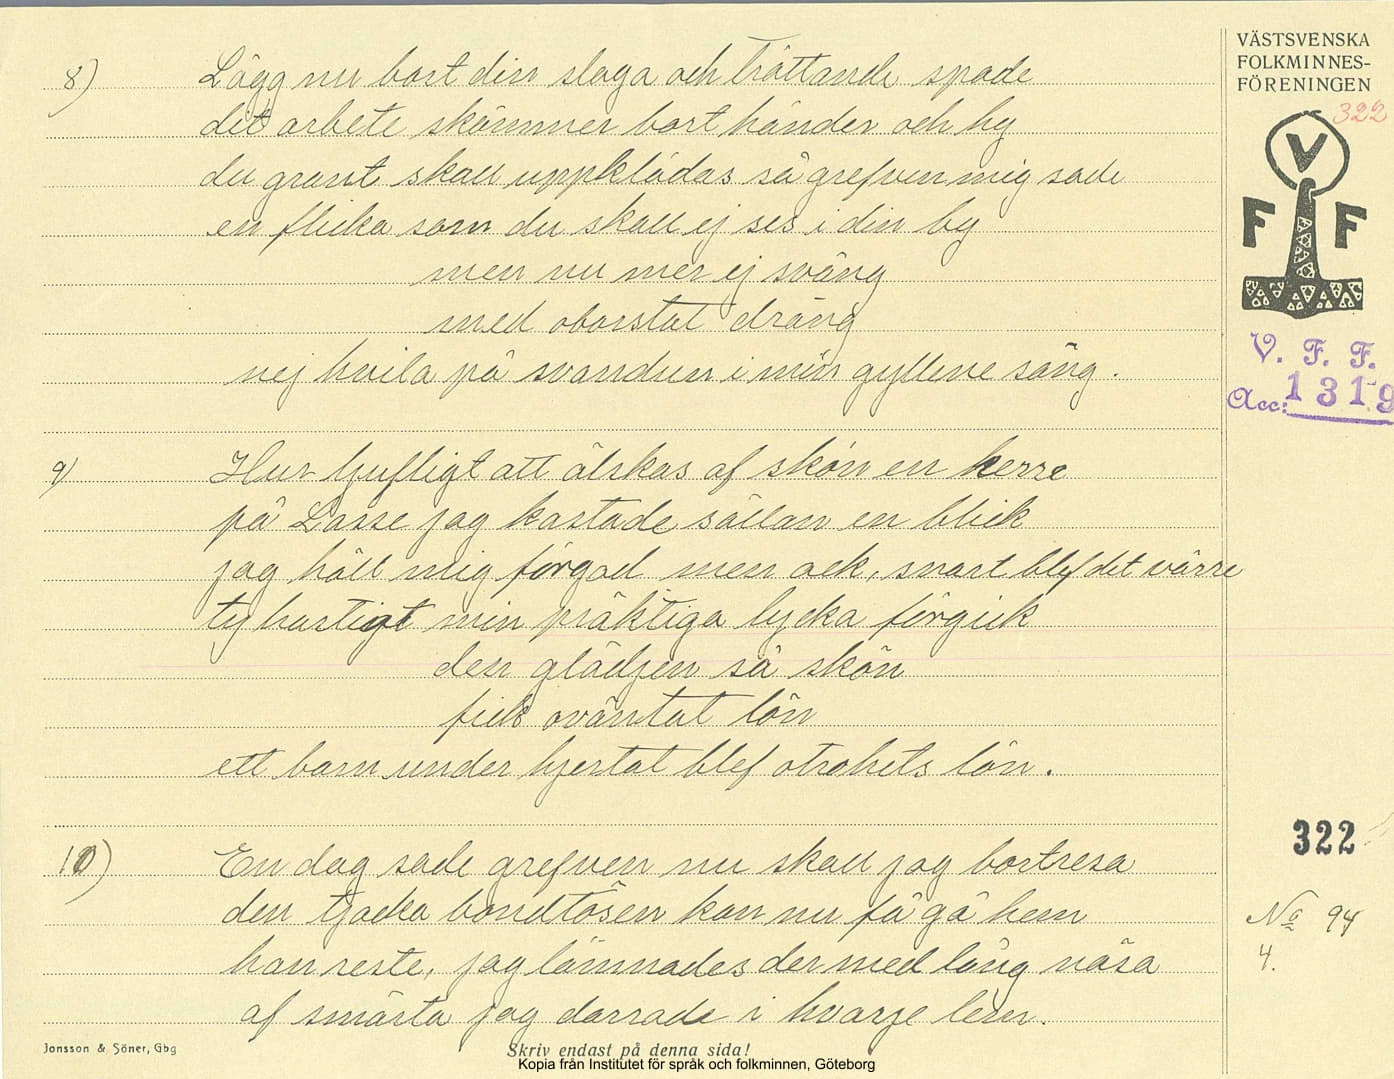 VÄSTSVENSKA
FOLKMINNES-
FÖRENINGEN
322
V
F F
V. F. F.
Acc: 1319
8) Lägg nu bort din slaga och trättande spade
det arbete skämmer bort händer och hy
du grant skall uppklädas så grefven mig sade
en flicka som du skall ej ses i din by
men nu mer ej sväng
med oborstat dräng
nej hvila på svandun i min gyllene säng.
9) Hur ljufligt att älskas af skön en herre
på Lasse jag kastade sällan en blick
jag höll mig förgod men ack, snart blef det värre
ty hastigt min präktiga lycka förgick
den glädjen så skön
fick oväntat lön
ett barn under hjertat blef otrohets lön.
10) En dag sade grefven nu skall jag bortresa
den tjocka bondtösen kan nu få gå hem
han reste, jag lämnades der med lång näsa
af smärta jag darrade i hvarje lem.
322
No 94
4.
Jonsson & Söner, Gbg
Skriv endast på denna sida!
Kopia från Institutet för språk och folkminnen, Göteborg